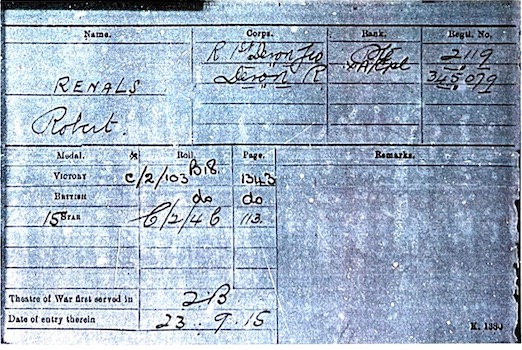 Name. Corps. Rank. Regtl. No.
R 1st Devon Yeo Pte 2119
RENALS Devon R A/Cpl 345079
Robert.
Medal. Roll. Page. Remarks.
VICTORY C/2/103 B18. 1343
BRITISH do do
15 STAR C/2/4C 113.
Theatre of War first served in 2B.
Date of entry therein 23. 9. 15
K. 1380